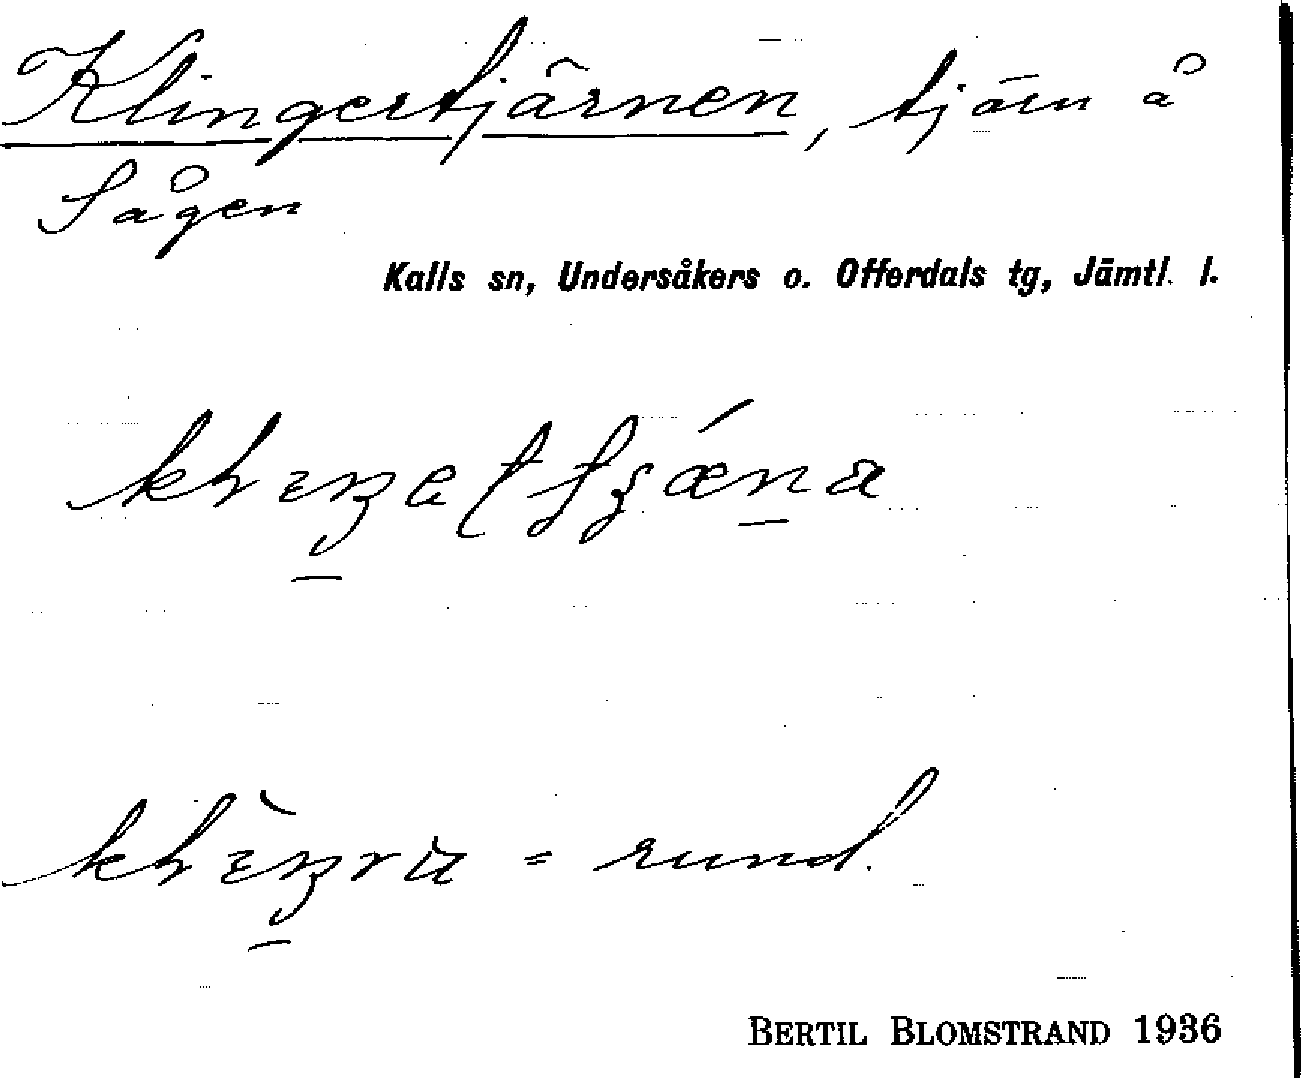 Klingertjärnen, tjärn å
Sågen
Kalls sn, Undersåkers o. Offerdals tg, Jämtl. l.
= rund.
BERTIL BLOMSTRAND 1936